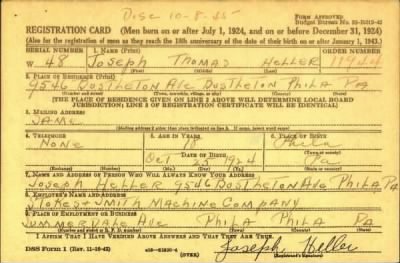 Disc 10-8-45
REGISTRATION CARD—(Men born on or after July 1, 1924, and on or before December 31, 1924)
FORM APPROVED
Budget Bureau No.
(Also for the registration of men as they reach the 18th anniversary of the date of their birth on or after January 1, 1943.)
SERIAL NUMBER 1. NAME (Print) ORDER NUMBER
W 48 JOSEPH THOMAS HELLER 11944
(First) (Middle) (Last)
2. PLACE OF RESIDENCE (Print)
9546 BUSTLETON AVE BUSTLETON PHILA PA
(Number and street) (Town, township, village, or city) (County) (State)
[THE PLACE OF RESIDENCE GIVEN ON LINE 2 ABOVE WILL DETERMINE LOCAL BOARD
JURISDICTION; LINE 2 OF REGISTRATION CERTIFICATE WILL BE IDENTICAL]
3. MAILING ADDRESS
SAME
4. TELEPHONE 5. AGE IN YEARS 6. PLACE OF BIRTH
NONE 18 Phila
DATE OF BIRTH
Oct 25 1924 Pa
(Exchange) (Number) (Mo.) (Day) (Yr.) (State or country)
7. NAME AND ADDRESS OF PERSON WHO WILL ALWAYS KNOW YOUR ADDRESS
JOSEPH HELLER 9546 BUSTLETON AVE PHILA PA
8. EMPLOYER'S NAME AND ADDRESS
STOKES + SMITH MACHINE COMPANY
9. PLACE OF EMPLOYMENT OR BUSINESS
SUMMERDALE AVE PHILA PHILA PA
(Number and street or R. F. D. number) (Town) (County) (State)
I AFFIRM THAT I HAVE VERIFIED ABOVE ANSWERS AND THAT THEY ARE TRUE.
DSS Form 1 (Rev. 11-16-42) (OVER) Joseph Heller
(Registrant's signature)